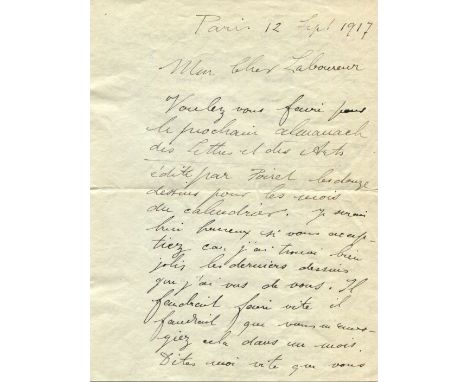 Paris 12 Sept 1917
Mon cher Laboureur
Voulez vous faire pour
le prochain almanach
des lettres et des Arts
édité par Poiret les douze
dessins pour les mois
du calendrier. Je serai
bien heureux si vous accep-
tiez car j'ai trouvé bien
jolis les derniers dessins
que j'ai vus de vous. Il
faudrait faire vite il
faudrait que vous m'envo-
yiez cela dans un mois.
Dites moi vite que vous